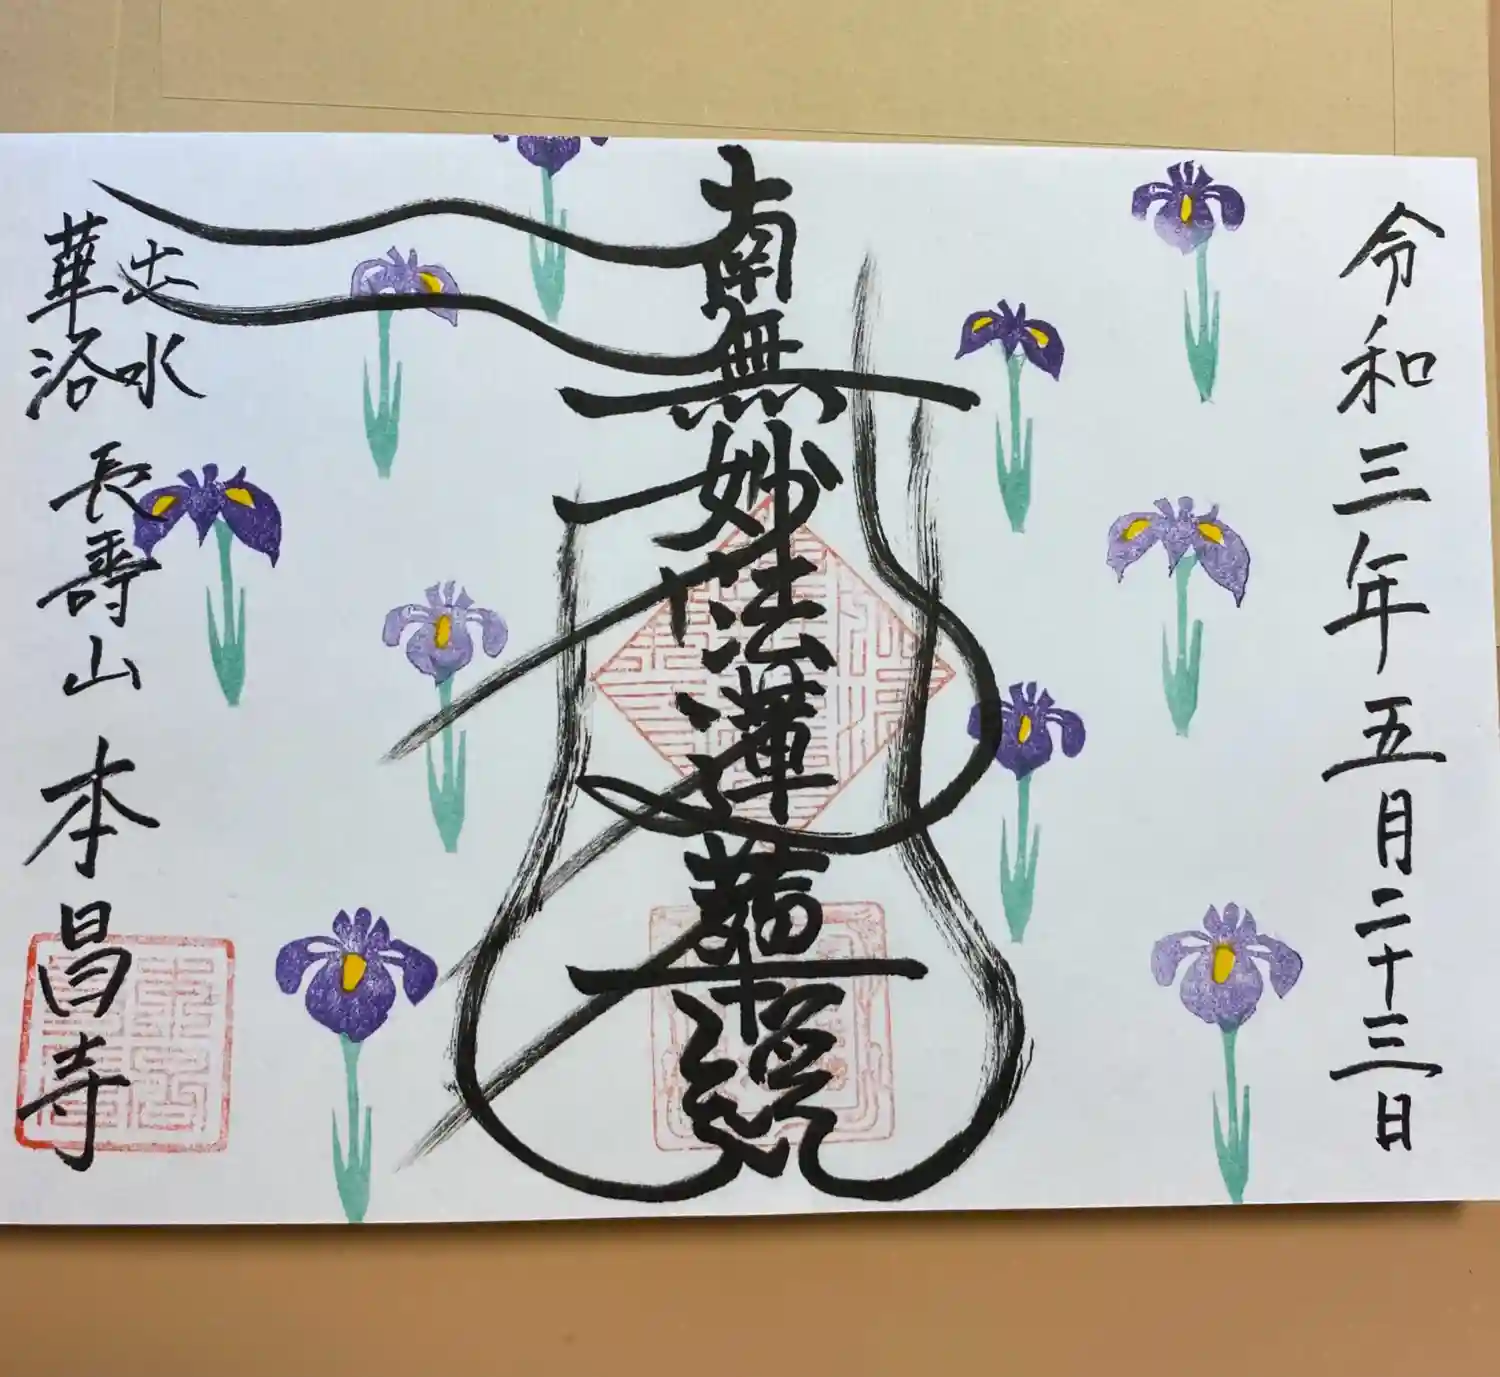 令和三年五月二十三日
南無妙法蓮華経
出水
華洛
長壽山 本昌寺